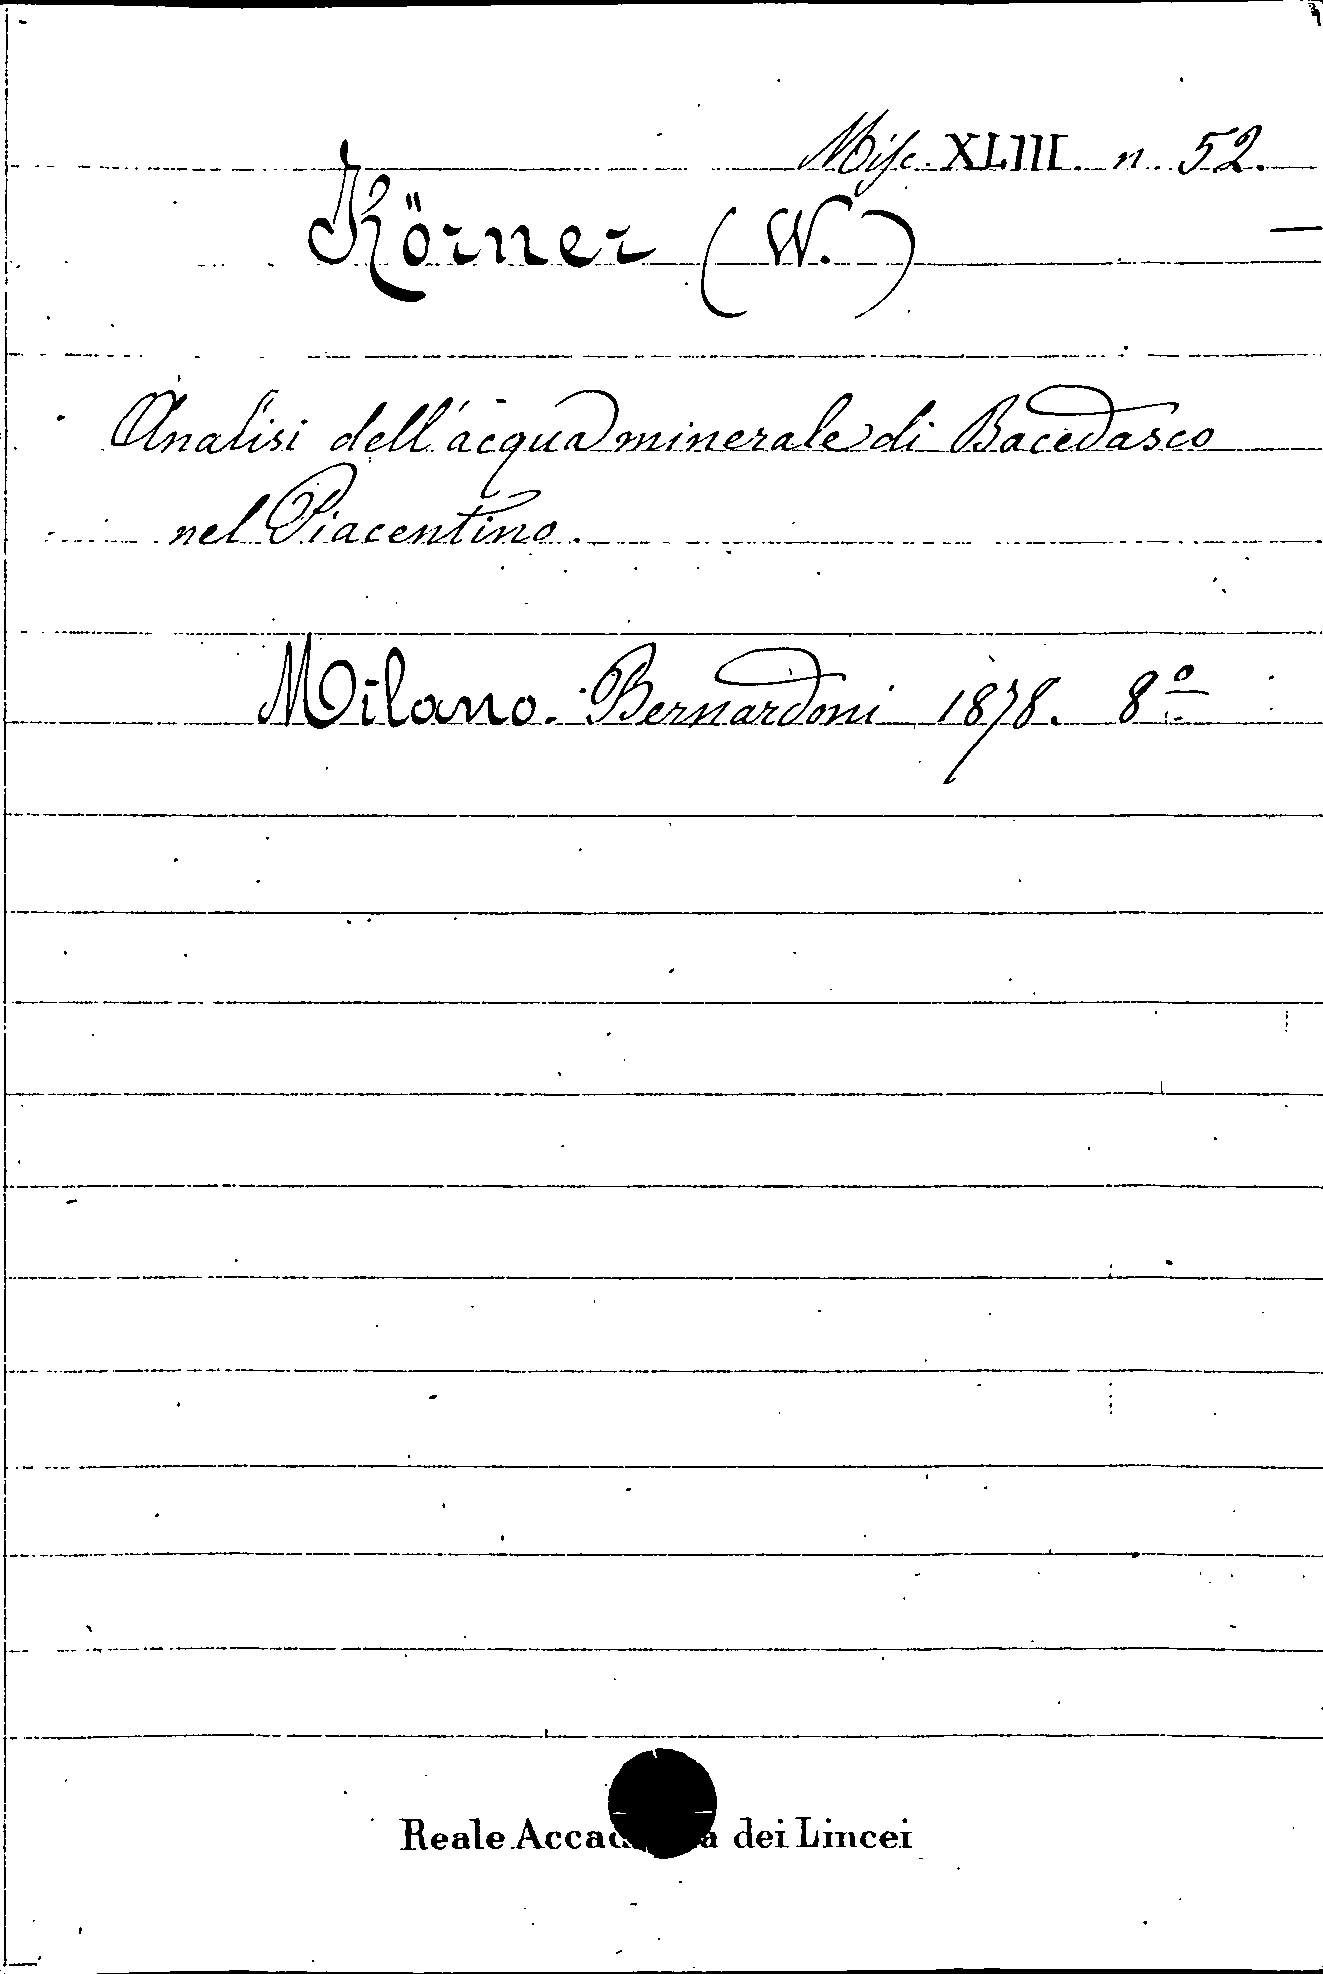 Misc. XLIII. n. 52.
Körner (W.)
Analisi dell'acqua minerale di Bacedasco
nel Piacentino.
Milano. Bernardoni 1878. 8º
Reale Accad a dei Lincei